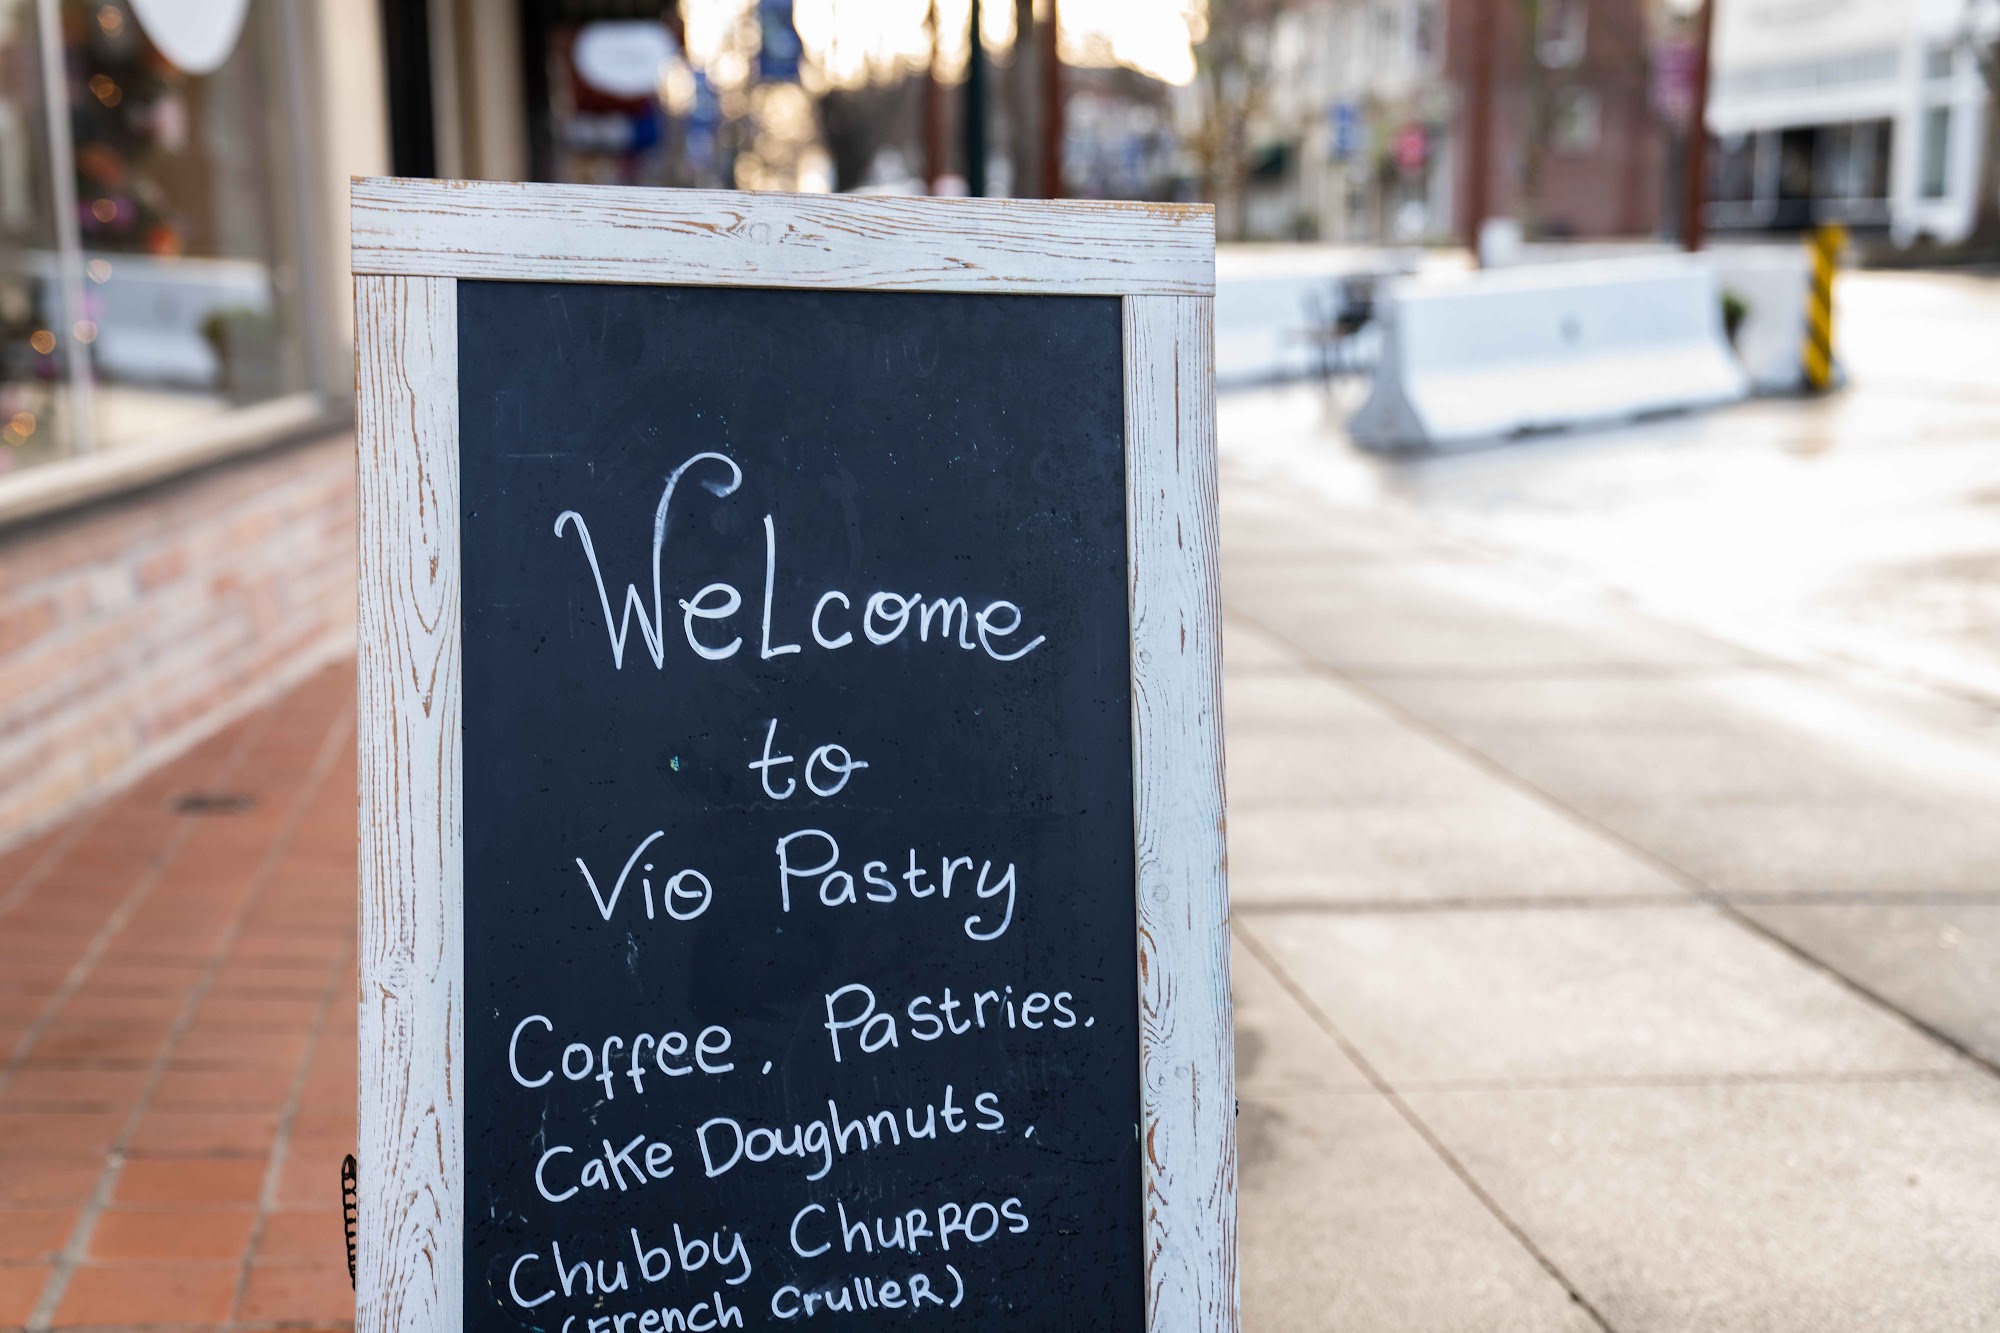 Welcome
to
Vio Pastry
Coffee, Pastries,
Cake Doughnuts,
Chubby Churros
(French Cruller)